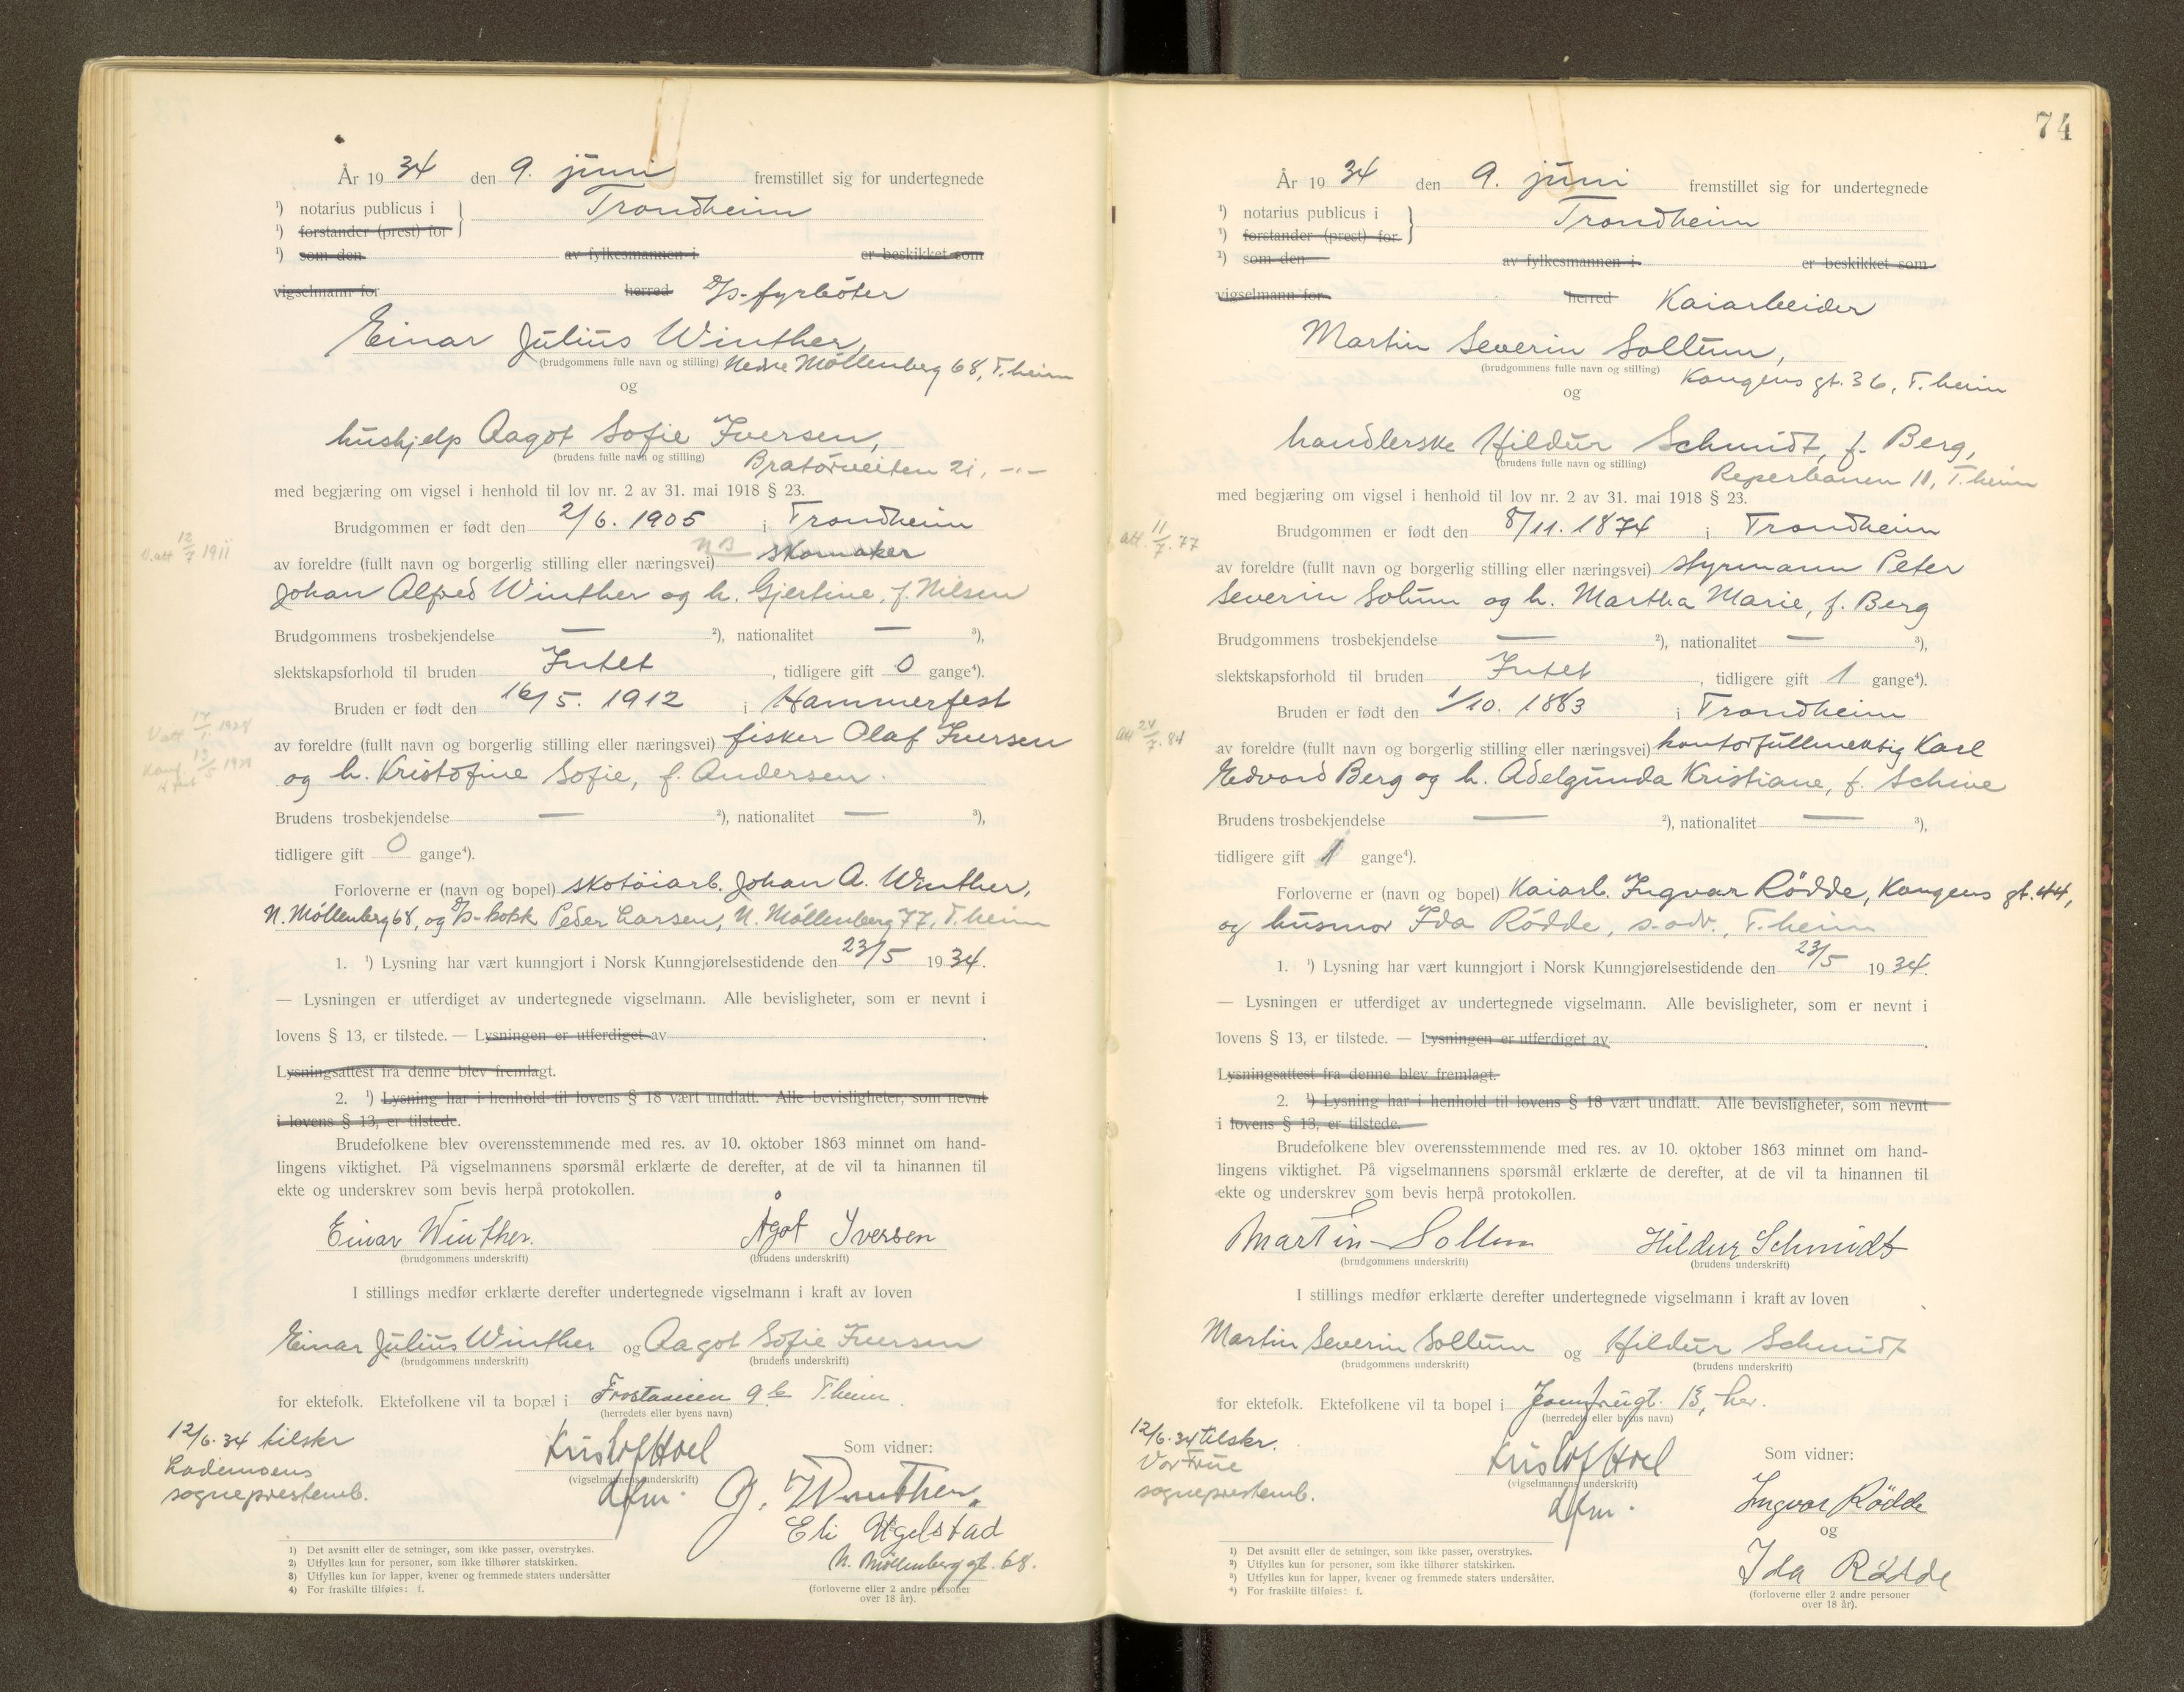 År 1934 den 9. juni fremstillet sig for undertegnede
¹) notarius publicus i } Trondheim
¹) forstander (prest) for
¹) som den av fylkesmannen i er beskikket som
vigselmann for herred D/S-fyrbøter
Einar Julius Winther,
(brudgommens fulle navn og stilling) Nedre Möllenberg 68, T.heim
og
hushjelp Aagot Sofie Iversen,
(brudens fulle navn og stilling) Bratörveiten 21, -"-
med begjæring om vigsel i henhold til lov nr. 2 av 31. mai 1918 § 23.
Brudgommen er født den 2/6. 1905 i Trondheim
V.att 12/7. 1911
av foreldre (fullt navn og borgerlig stilling eller næringsvei) NB skomaker
Johan Alfred Winther og h. Gjertine, f. Nilsen
Brudgommens trosbekjendelse — ²), nationalitet — ³),
slektskapsforhold til bruden Intet, tidligere gift 0 gange⁴).
Bruden er født den 16/5. 1912 i Hammerfest
av foreldre (fullt navn og borgerlig stilling eller næringsvei) fisker Olaf Iversen
og h. Kristofine Sofie, f. Andersen.
Brudens trosbekjendelse — ²), nationalitet — ³),
tidligere gift 0 gange⁴).
Forloverne er (navn og bopel) skotöiarb. Johan A. Winther,
N. Möllenberg 68, og D/S-kokk Peder Larsen, N. Möllenberg 77, T.heim
1. ¹) Lysning har vært kunngjort i Norsk Kunngjørelsestidende den 23/5 1934.
— Lysningen er utferdiget av undertegnede vigselmann. Alle bevisligheter, som er nevnt i
lovens § 13, er tilstede. — Lysningen er utferdiget av .
Lysningsattest fra denne blev fremlagt.
2. ¹) Lysning har i henhold til lovens § 18 vært undlatt. Alle bevisligheter, som nevnt
i lovens § 13, er tilstede.
Brudefolkene blev overensstemmende med res. av 10. oktober 1863 minnet om hand-
lingens viktighet. På vigselmannens spørsmål erklærte de derefter, at de vil ta hinannen til
ekte og underskrev som bevis herpå protokollen.
Einar Winther. Ågot Iversen
(brudgommens underskrift) (brudens underskrift)
I stillings medfør erklærte derefter undertegnede vigselmann i kraft av loven
Einar Julius Winther og Aagot Sofie Iversen
(brudgommens underskrift) (brudens underskrift)
for ektefolk. Ektefolkene vil ta bopæl i Frostaveien 9b T.heim.
(herredets eller byens navn)
12/6.34 tilskr
Lademoens
sogneprestemb.
Kristof Hoel
(vigselmannens underskrift)
dfm.
Som vidner:
J. Winther.
Eli Ugelstad
N. Möllenberg gt. 68.
(forloverne eller 2 andre personer
over 18 år).
1) Det avsnitt eller de setninger, som ikke passer, overstrykes.
2) Utfylles kun for personer, som ikke tilhører statskirken.
3) Utfylles kun for lapper, kvener og fremmede staters undersåtter
4) For fraskilte tilføies: f.
74
År 1934 den 9. juni fremstillet sig for undertegnede
¹) notarius publicus i } Trondheim
¹) forstander (prest) for
¹) som den av fylkesmannen i er beskikket som
vigselmann for herred Kaiarbeider
Martin Severin Sollum,
(brudgommens fulle navn og stilling) Kongens gt. 36, T.heim
og
handlerske Hildur Schmidt, f. Berg,
(brudens fulle navn og stilling) Reperbanen 11, T.heim
med begjæring om vigsel i henhold til lov nr. 2 av 31. mai 1918 § 23.
Brudgommen er født den 8/11. 1874 i Trondheim
att. 11/7. 77
av foreldre (fullt navn og borgerlig stilling eller næringsvei) styrmann Peter
Severin Solum og h. Martha Marie, f. Berg
Brudgommens trosbekjendelse — ²), nationalitet — ³),
slektskapsforhold til bruden Intet, tidligere gift 1 gange⁴).
Bruden er født den 1/10. 1883 i Trondheim
att 24/7. 84
av foreldre (fullt navn og borgerlig stilling eller næringsvei) kontorfullmektig Karl
Edvard Berg og h. Adelgunda Kristiane, f. Schive
Brudens trosbekjendelse — ²), nationalitet — ³),
tidligere gift 1 gange⁴).
Forloverne er (navn og bopel) Kaiarb. Ingvar Rödde, Kongens gt. 44,
og husmor Ida Rödde, s. adr., T.heim
1. ¹) Lysning har vært kunngjort i Norsk Kunngjørelsestidende den 23/5 1934.
— Lysningen er utferdiget av undertegnede vigselmann. Alle bevisligheter, som er nevnt i
lovens § 13, er tilstede. — Lysningen er utferdiget av .
Lysningsattest fra denne blev fremlagt.
2. ¹) Lysning har i henhold til lovens § 18 vært undlatt. Alle bevisligheter, som nevnt
i lovens § 13, er tilstede.
Brudefolkene blev overensstemmende med res. av 10. oktober 1863 minnet om hand-
lingens viktighet. På vigselmannens spørsmål erklærte de derefter, at de vil ta hinannen til
ekte og underskrev som bevis herpå protokollen.
Martin Sollum Hildur Schmidt
(brudgommens underskrift) (brudens underskrift)
I stillings medfør erklærte derefter undertegnede vigselmann i kraft av loven
Martin Severin Sollum og Hildur Schmidt
(brudgommens underskrift) (brudens underskrift)
for ektefolk. Ektefolkene vil ta bopel i Jomfrugt. 13, her.
(herredets eller byens navn)
12/6.34 tilskr.
Vor Frue
sogneprestemb.
Kristof Hoel
(vigselmannens underskrift)
dfm.
Som vidner:
Ingvar Rödde
og
Ida Rödde
(forloverne eller 2 andre personer
over 18 år).
¹) Det avsnitt eller de setninger, som ikke passer, overstrykes.
²) Utfylles kun for personer, som ikke tilhører statskirken.
³) Utfylles kun for lapper, kvener og fremmede staters undersåtter.
⁴) For fraskilte tilføies: f.